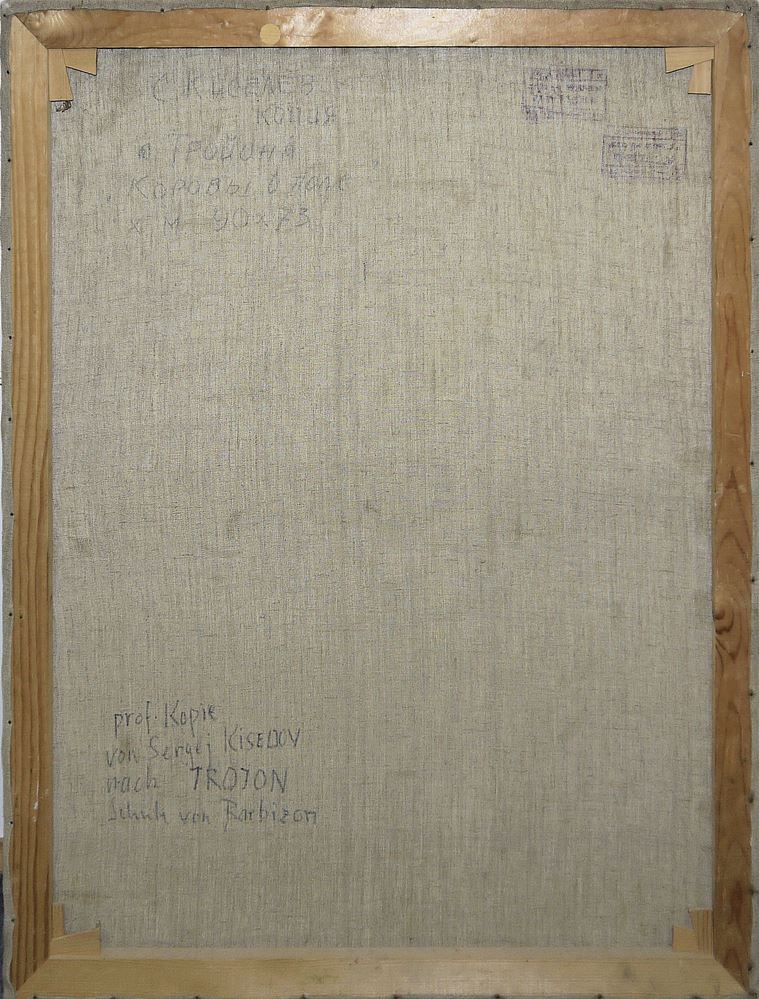 С Киселев
копия
с. Тройона
"Коровы в поле"
х м 90х73
prof. Kopie
von Sergej KISELOV
nach TROJON
Schule von Barbizon